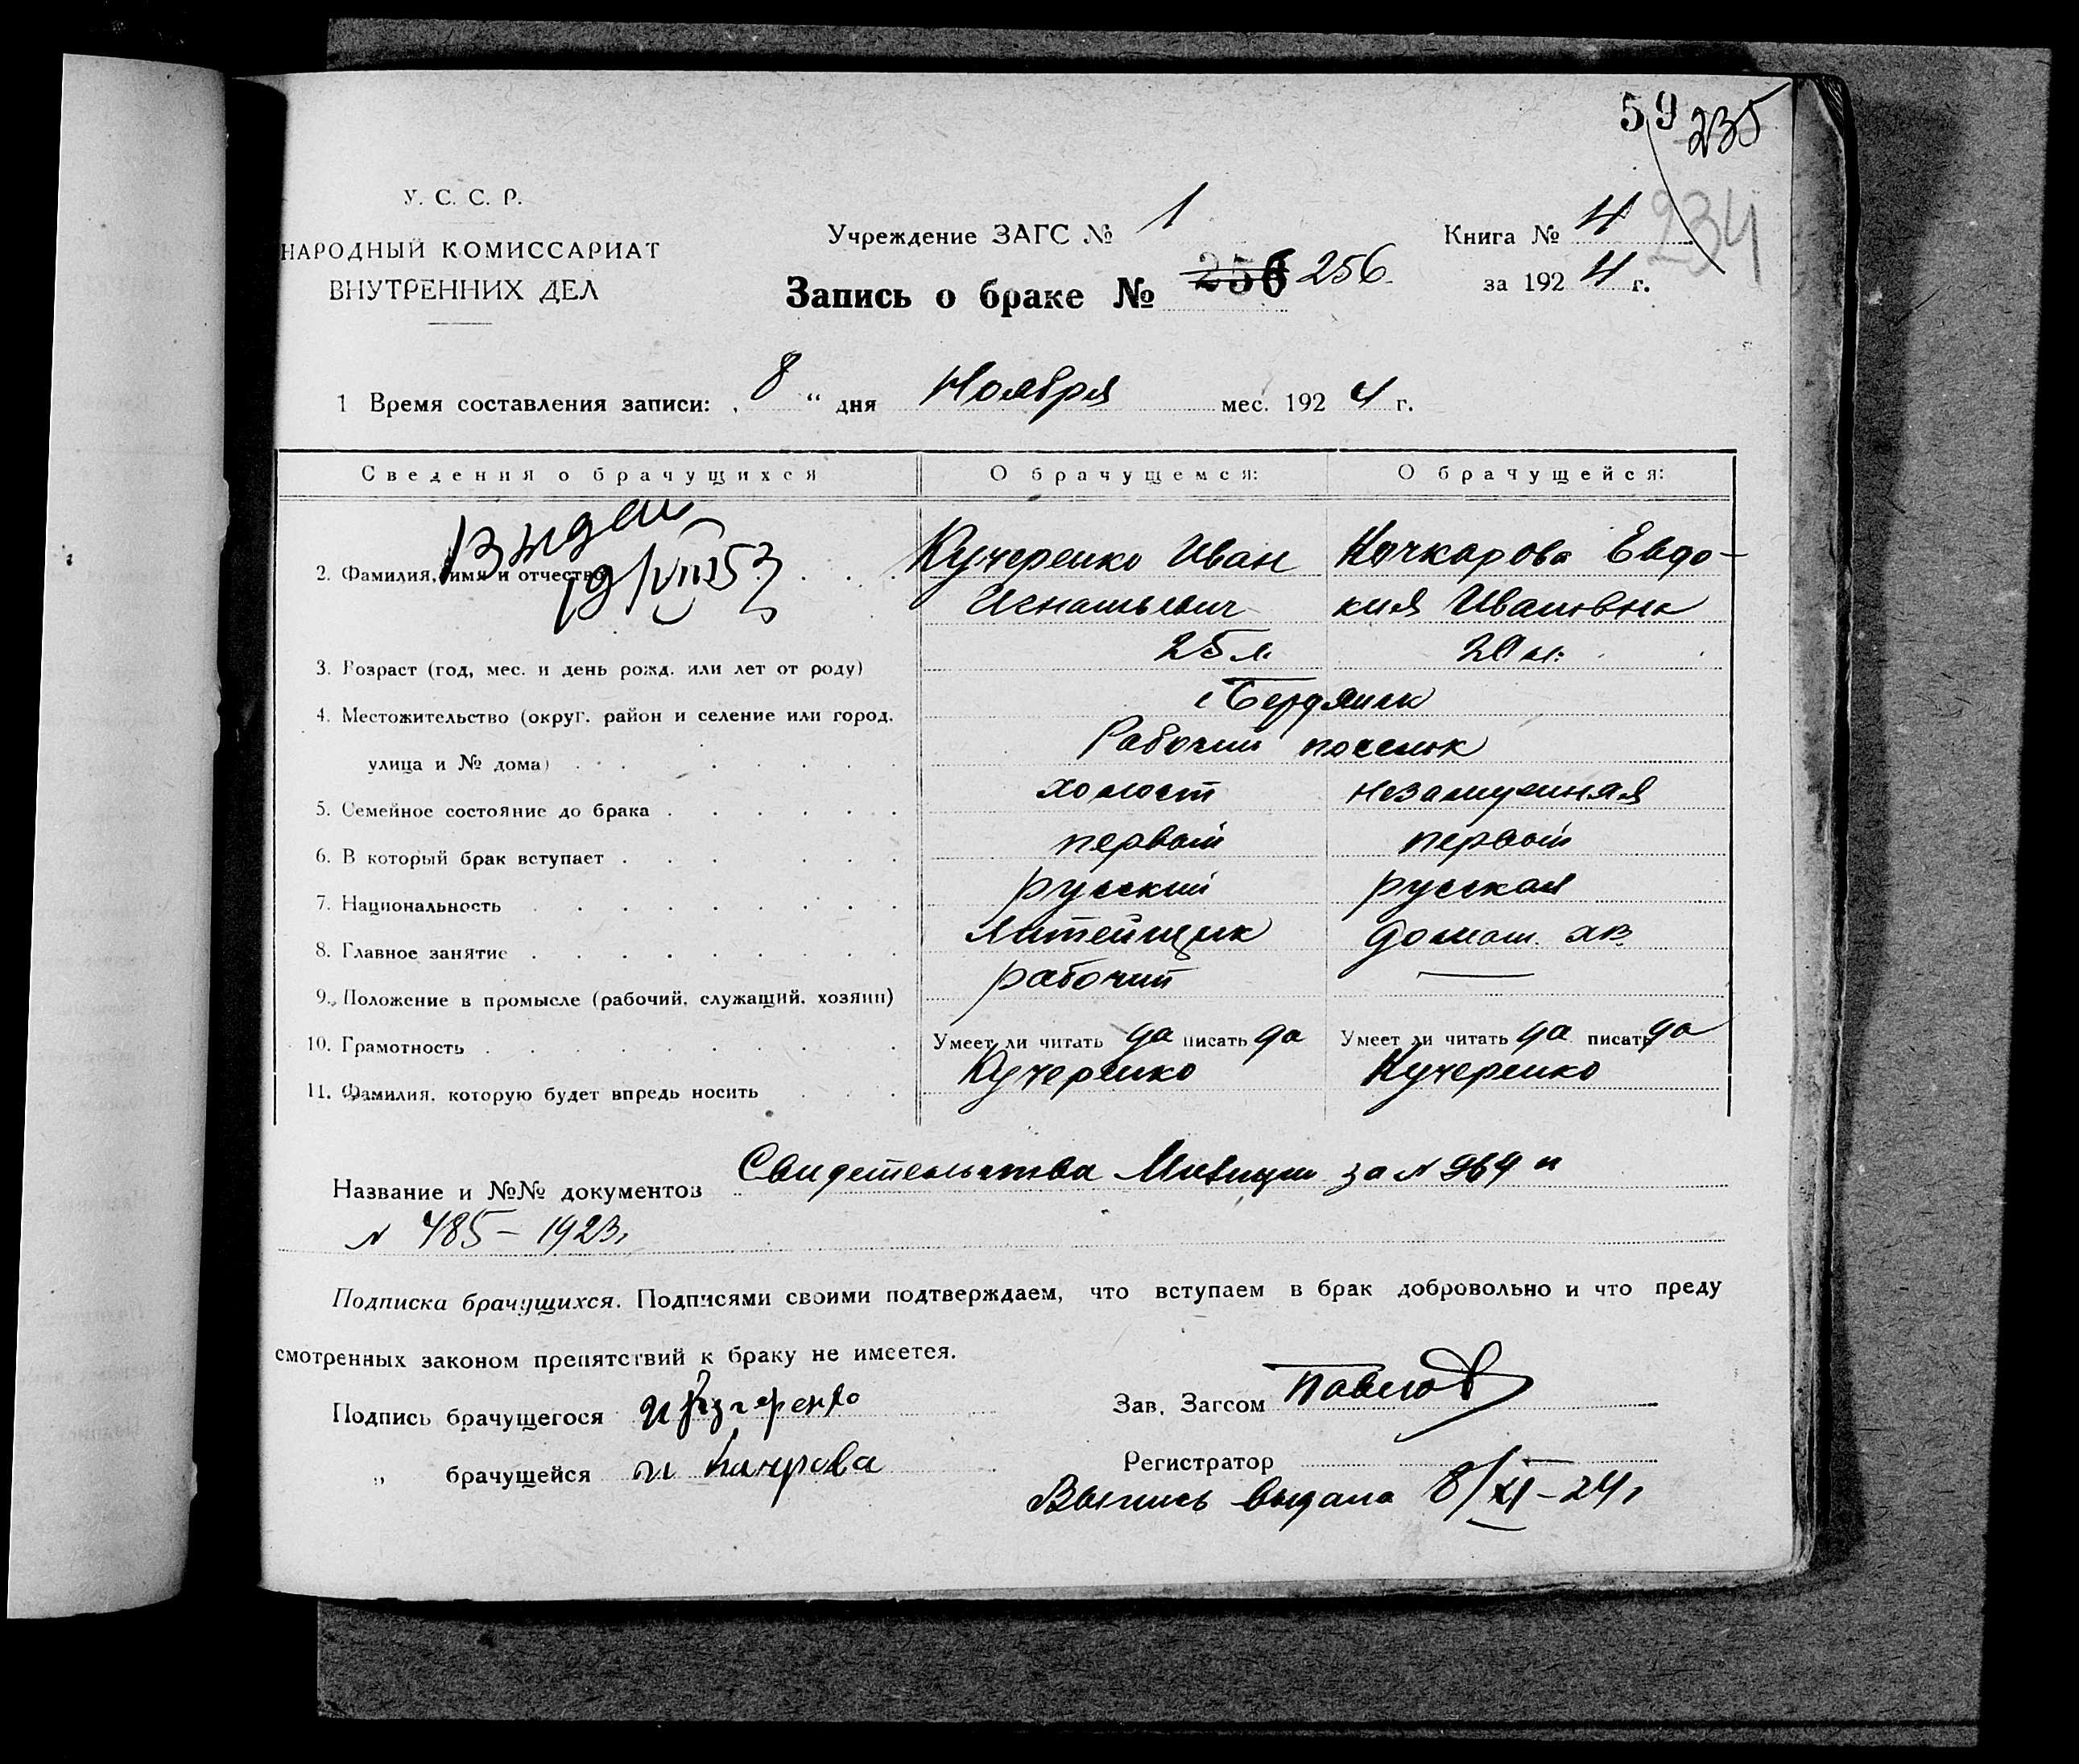 59 235
234
У. С. С. Р.
НАРОДНЫЙ КОМИССАРИАТ
ВНУТРЕННИХ ДЕЛ
Учреждение ЗАГС № 1
Книга № 4
Запись о браке № 256 256.
за 1924 г.
1 Время составления записи: „8“ дня Ноября мес. 1924 г.
Сведения о брачущихся О брачущемся: О брачущейся:
2. Фамилия, имя и отчество Кучеренко Иван Качкарова Евдо-
Игнатьевич кия Ивановна
3. Возраст (год, мес. и день рожд. или лет от роду) 25 л. 20 л.
4. Местожительство (округ. район и селение или город, г Бердянск
улица и № дома) Рабочий поселок
5. Семейное состояние до брака холост незамужняя
6. В который брак вступает первый первый
7. Национальность русский русская
8. Главное занятие Литейщик домаш. хоз.
9. Положение в промысле (рабочий, служащий, хозяин) рабочий —
10. Грамотность Умеет ли читать да писать да Умеет ли читать да писать да
11. Фамилия, которую будет впредь носить Кучеренко Кучеренко
Название и №№ документов Свидетельства Милиции за № 964 и
№ 485 – 1923.
Подписка брачущихся. Подписями своими подтверждаем, что вступаем в брак добровольно и что преду
смотренных законом препятствий к браку не имеется.
Подпись брачущегося И Кучеренко Зав. Загсом Павлов
„ брачущейся и Регистратор
Выпись выдана 8/XI – 24.